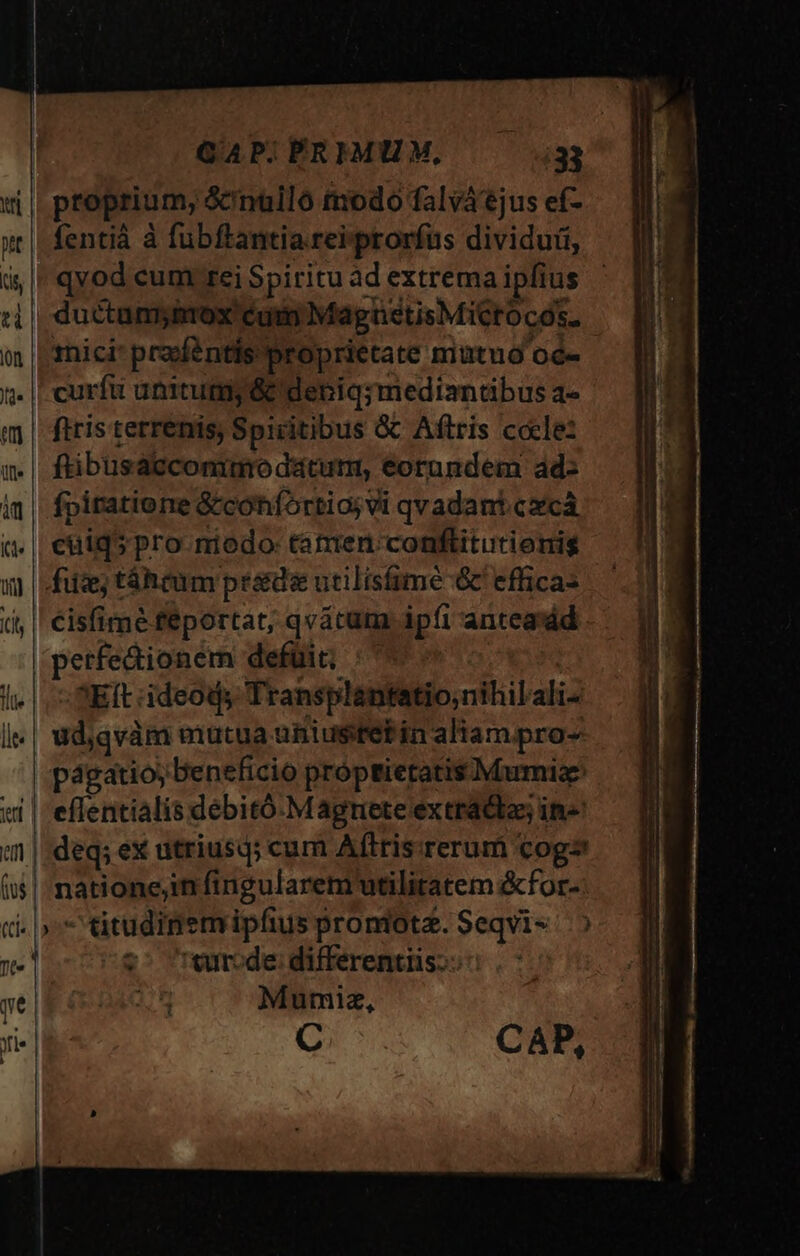 CAP. PRIMUM. 33
proprium, & nullo modo salvâ ejus es-
sentiâ à substantia rei prorsus dividuũ,
qvod cum rei Spiritu ad extrema ipsius
ductum, mox cum Magnetis Microcos-
mici præsentis proprietate mutuo oc-
cursu unitum, & deniq; mediantibus a-
stris terrenis, Spiritibus & Astris cœle-
stibus accommodatum, eorundem ad-
spiratione & consortio, vi qvadam cæcâ
cuiq; pro modo tamen constitutionis
suæ, tantum prædæ utilissimè & effica-
cissimè reportat, qvãtum ipsi antea ad
perfectionem defuit.
Est ideoq; Transplantatio, nihil ali-
ud, qvàm mutua unius rei in aliam pro-
pagatio, beneficio proprietatis Mumiæ
essentialis debitô Magnete extractæ, in-
deq; ex utriusq; cum Astris rerum cog-
natione, in singularem utilitatem & for-
titudinem ipsius promotæ. Seqvi-
tur de differentiis
Mumiæ,
C CAP,